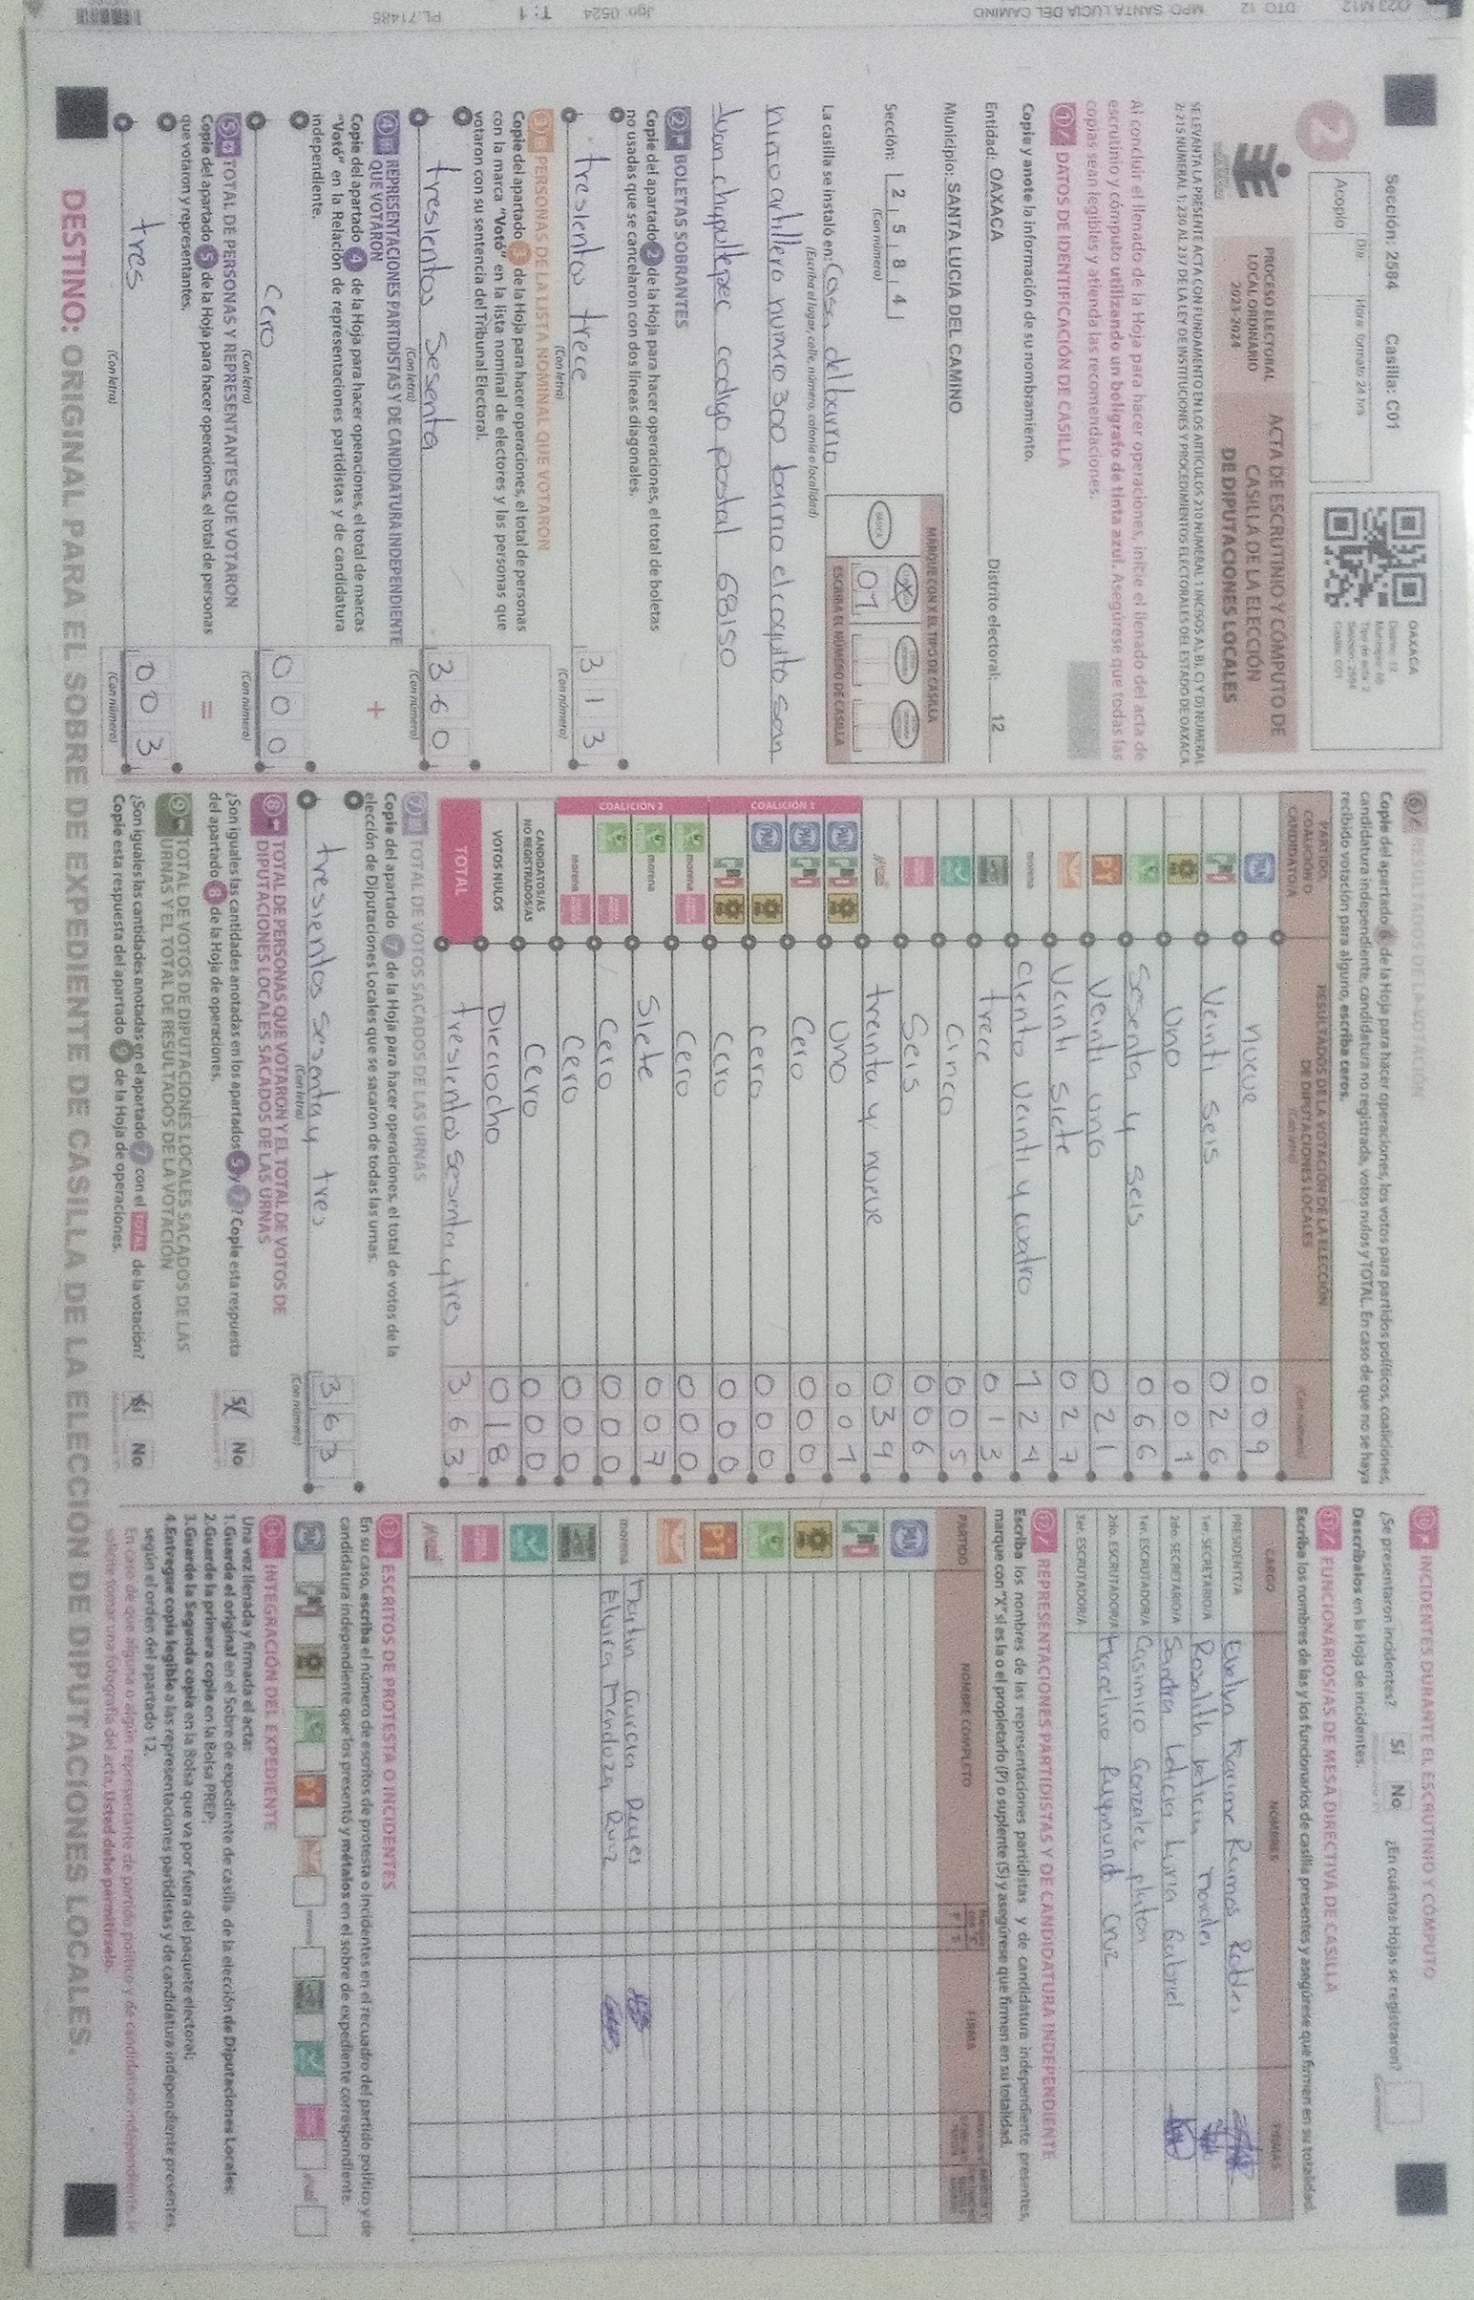 Sección: 2584 Casilla: C01
OAXACA
2
Acopio
Día
Hora: formato 24 hrs
PROCESO ELECTORAL
LOCAL ORDINARIO
2023-2024
ACTA DE ESCRUTINIO Y CÓMPUTO DE
CASILLA DE LA ELECCIÓN
DE DIPUTACIONES LOCALES
Al concluir el llenado de la Hoja para hacer operaciones, inicie el llenado del acta de
escrutinio y cómputo utilizando un bolígrafo de tinta azul. Asegúrese que todas las
copias sean legibles y atienda las recomendaciones.
1 DATOS DE IDENTIFICACIÓN DE CASILLA
Copie y anote la información de su nombramiento.
Entidad: OAXACA Distrito electoral: 12
Municipio: SANTA LUCIA DEL CAMINO
Sección: 2 5 8 4
(Con número)
MARQUE CON X EL TIPO DE CASILLA
01
ESCRIBA EL NÚMERO DE CASILLA
La casilla se instaló en: Casa del barrio
(Escriba el lugar, calle, número, colonia o localidad)
niño artillero numero 300 barrio el coquito san
Juan chapultepec codigo postal 68150
2 BOLETAS SOBRANTES
Copie del apartado 2 de la Hoja para hacer operaciones, el total de boletas
no usadas que se cancelaron con dos líneas diagonales.
tresientos trece 313
(Con letra) (Con número)
3 PERSONAS DE LA LISTA NOMINAL QUE VOTARON
Copie del apartado 3 de la Hoja para hacer operaciones, el total de personas
con la marca "Votó" en la lista nominal de electores y las personas que
votaron con su sentencia del Tribunal Electoral.
tresientos sesenta 360
(Con letra) (Con número)
4 REPRESENTACIONES PARTIDISTAS Y DE CANDIDATURA INDEPENDIENTE
QUE VOTARON
Copie del apartado 4 de la Hoja para hacer operaciones, el total de marcas
"Votó" en la Relación de representaciones partidistas y de candidatura
independiente.
+
cero 000
(Con letra) (Con número)
5 TOTAL DE PERSONAS Y REPRESENTANTES QUE VOTARON
Copie del apartado 5 de la Hoja para hacer operaciones, el total de personas
que votaron y representantes.
=
tres 003
(Con letra) (Con número)
6 RESULTADOS DE LA VOTACIÓN
Copie del apartado 6 de la Hoja para hacer operaciones, los votos para partidos políticos, coaliciones,
candidatura independiente, candidatura no registrada, votos nulos y TOTAL. En caso de que no se haya
recibido votación para alguno, escriba ceros.
PARTIDO,
COALICIÓN O
CANDIDATO/A
RESULTADOS DE LA VOTACIÓN DE LA ELECCIÓN
DE DIPUTACIONES LOCALES
(Con letra)
(Con número)
PAN nueve 009
PRI Veinti seis 026
Uno 001
Sesenta y seis 066
PT Veinti uno 021
Veinti siete 027
morena Ciento veinti y cuatro 124
trece 013
cinco 005
Seis 006
treinta y nueve 039
COALICIÓN 1
PAN PRI uno 001
PAN PRI Cero 000
PAN cero 000
PRI cero 000
COALICIÓN 2
morena cero 000
morena Siete 007
cero 000
morena cero 000
CANDIDATOS/AS
NO REGISTRADOS/AS cero 000
VOTOS NULOS Dieciocho 018
TOTAL tresientos sesenta y tres 363
7 TOTAL DE VOTOS SACADOS DE LAS URNAS
Copie del apartado 7 de la Hoja para hacer operaciones, el total de votos de la
elección de Diputaciones Locales que se sacaron de todas las urnas.
tresientos sesenta y tres 363
(Con letra) (Con número)
8 TOTAL DE PERSONAS QUE VOTARON Y EL TOTAL DE VOTOS DE
DIPUTACIONES LOCALES SACADOS DE LAS URNAS
¿Son iguales las cantidades anotadas en los apartados 5 y 7? Copie esta respuesta
del apartado 8 de la Hoja de operaciones.
Sí No
9 TOTAL DE VOTOS DE DIPUTACIONES LOCALES SACADOS DE LAS
URNAS Y EL TOTAL DE RESULTADOS DE LA VOTACIÓN
¿Son iguales las cantidades anotadas en el apartado 7 con el TOTAL de la votación?
Copie esta respuesta del apartado 9 de la Hoja de operaciones.
Sí No
10 INCIDENTES DURANTE EL ESCRUTINIO Y CÓMPUTO
¿Se presentaron incidentes? Sí No ¿En cuántas Hojas se registraron?
Descríbalos en la Hoja de incidentes.
11 FUNCIONARIOS/AS DE MESA DIRECTIVA DE CASILLA
Escriba los nombres de las y los funcionarios de casilla presentes y asegúrese que firmen en su totalidad.
CARGO NOMBRES FIRMAS
PRESIDENTE/A Evelyn Ramos Robles
1er. SECRETARIO/A Rosalith Leticia Morales
2do. SECRETARIO/A Sandra Leticia Luria Gabriel
1er. ESCRUTADOR/A Casimiro Gonzalez platon
2do. ESCRUTADOR/A Marcelino Raymundo Cruz
3er. ESCRUTADOR/A
12 REPRESENTACIONES PARTIDISTAS Y DE CANDIDATURA INDEPENDIENTE
Escriba los nombres de las representaciones partidistas y de candidatura independiente presentes,
marque con "X" si es la o el propietario (P) o suplente (S) y asegúrese que firmen en su totalidad.
PARTIDO NOMBRE COMPLETO FIRMA
PAN
PRI
PT
morena Martin Garcia Reyes
Elvira Mendoza Ruiz
13 ESCRITOS DE PROTESTA O INCIDENTES
En su caso, escriba el número de escritos de protesta o incidentes en el recuadro del partido político y de
candidatura independiente que los presentó y métalos en el sobre de expediente correspondiente.
14 INTEGRACIÓN DEL EXPEDIENTE
Una vez llenada y firmada el acta:
1.Guarde el original en el Sobre de expediente de casilla de la elección de Diputaciones Locales;
2.Guarde la primera copia en la Bolsa PREP;
3.Guarde la Segunda copia en la Bolsa que va por fuera del paquete electoral;
4.Entregue copia legible a las representaciones partidistas y de candidatura independiente presentes,
según el orden del apartado 12.
En caso de que alguna o algún representante de partido político y de candidatura independiente, le
solicite tomar una fotografía del acta, Usted debe permitírselo.
DESTINO: ORIGINAL PARA EL SOBRE DE EXPEDIENTE DE CASILLA DE LA ELECCIÓN DE DIPUTACIONES LOCALES.
DTO 12 MPO. SANTA LUCIA DEL CAMINO Jgo: 0524 T: 1 PL.71485